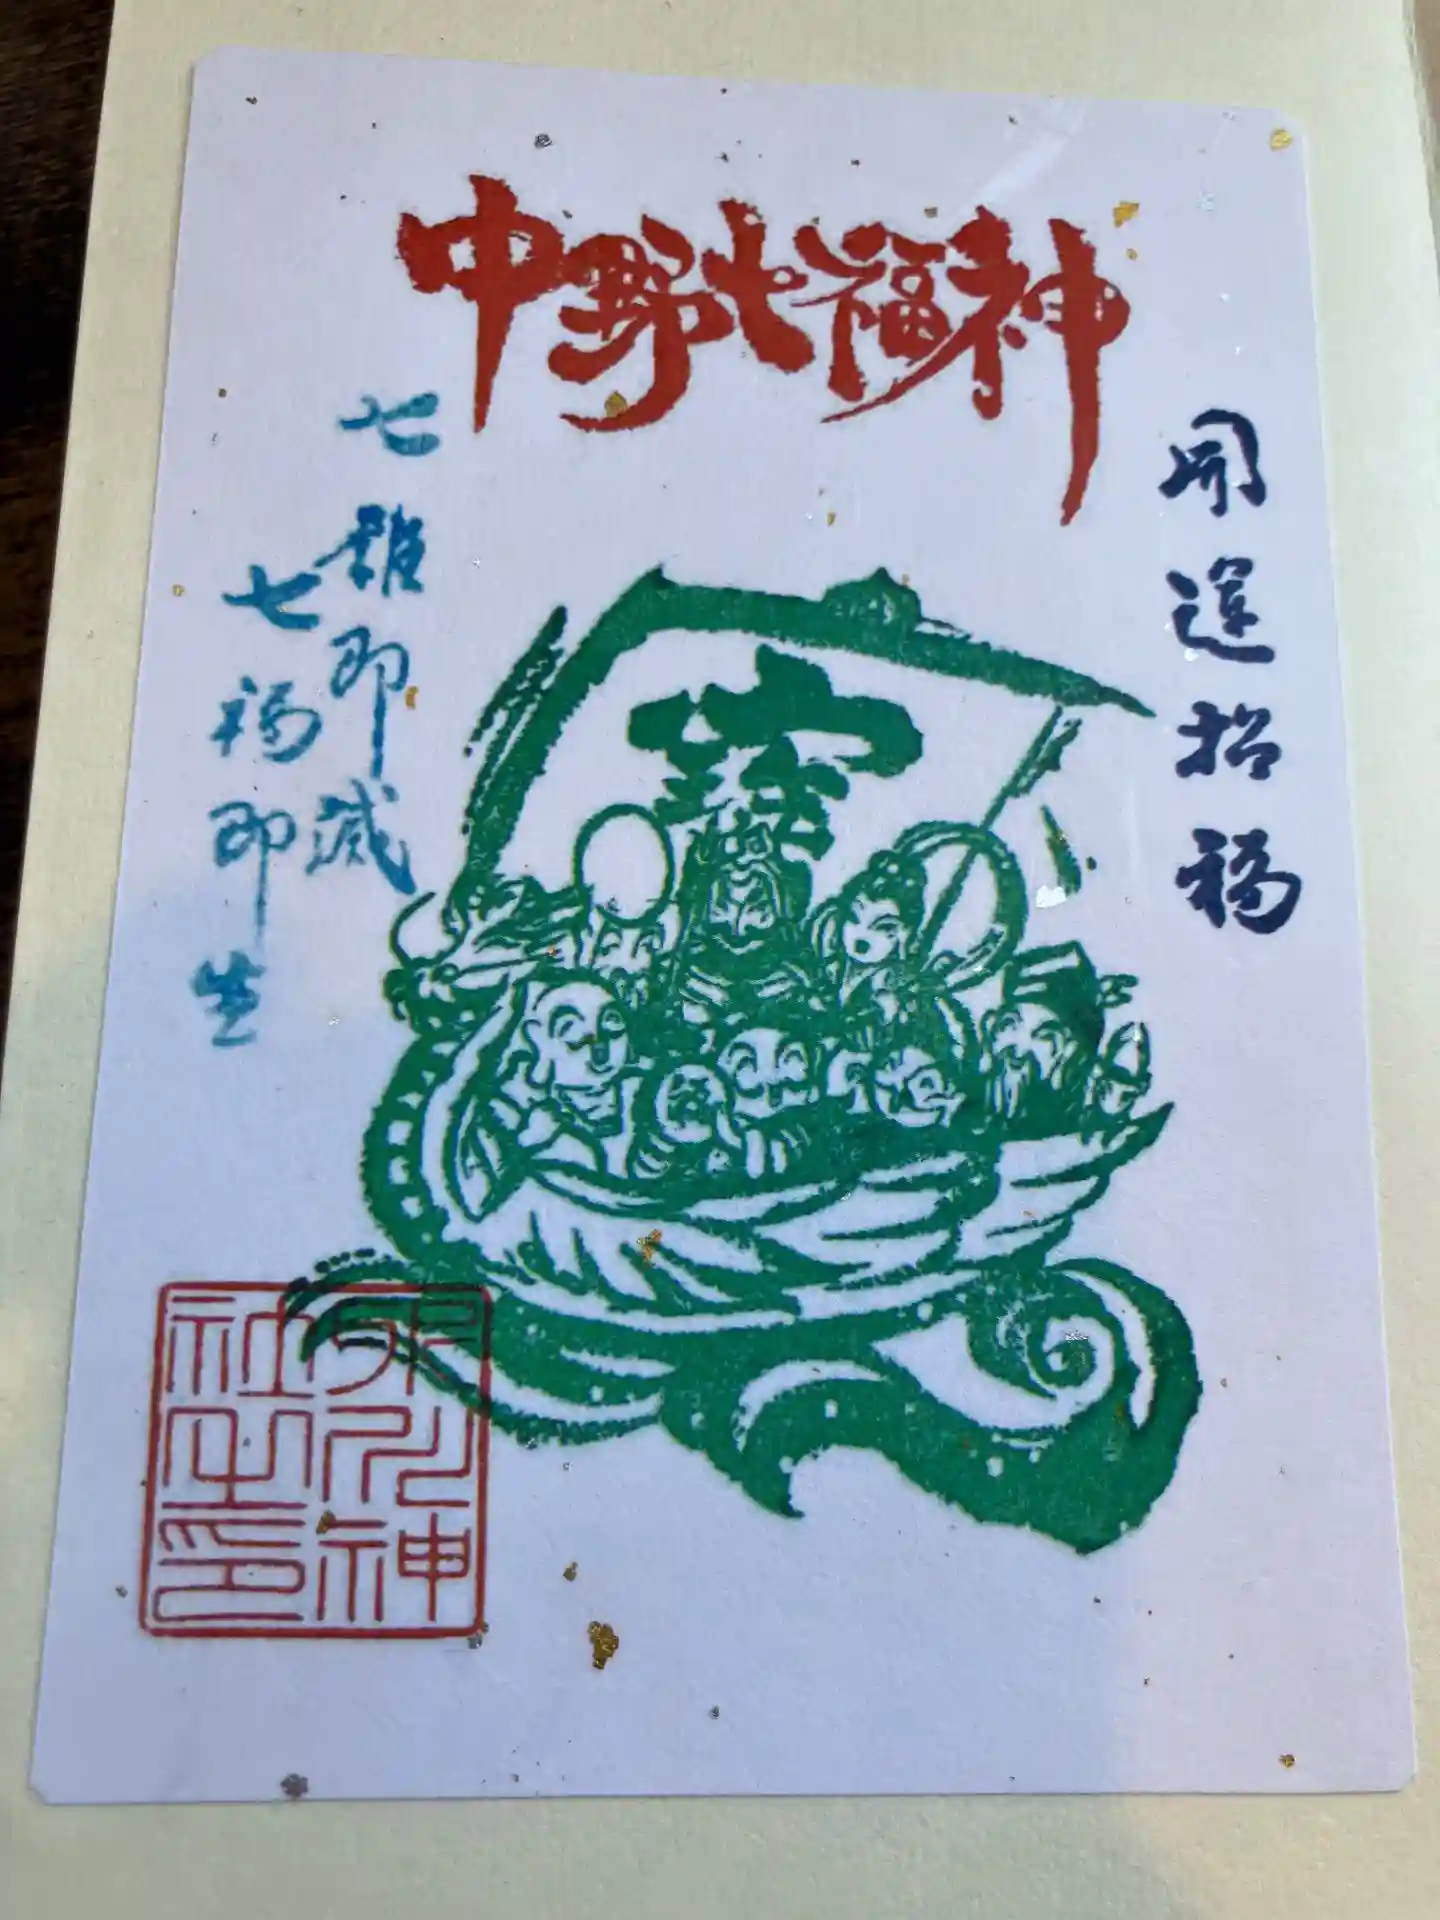 中野七福神
開運招福
七難即滅
七福即生
寳
氷川神
社之印